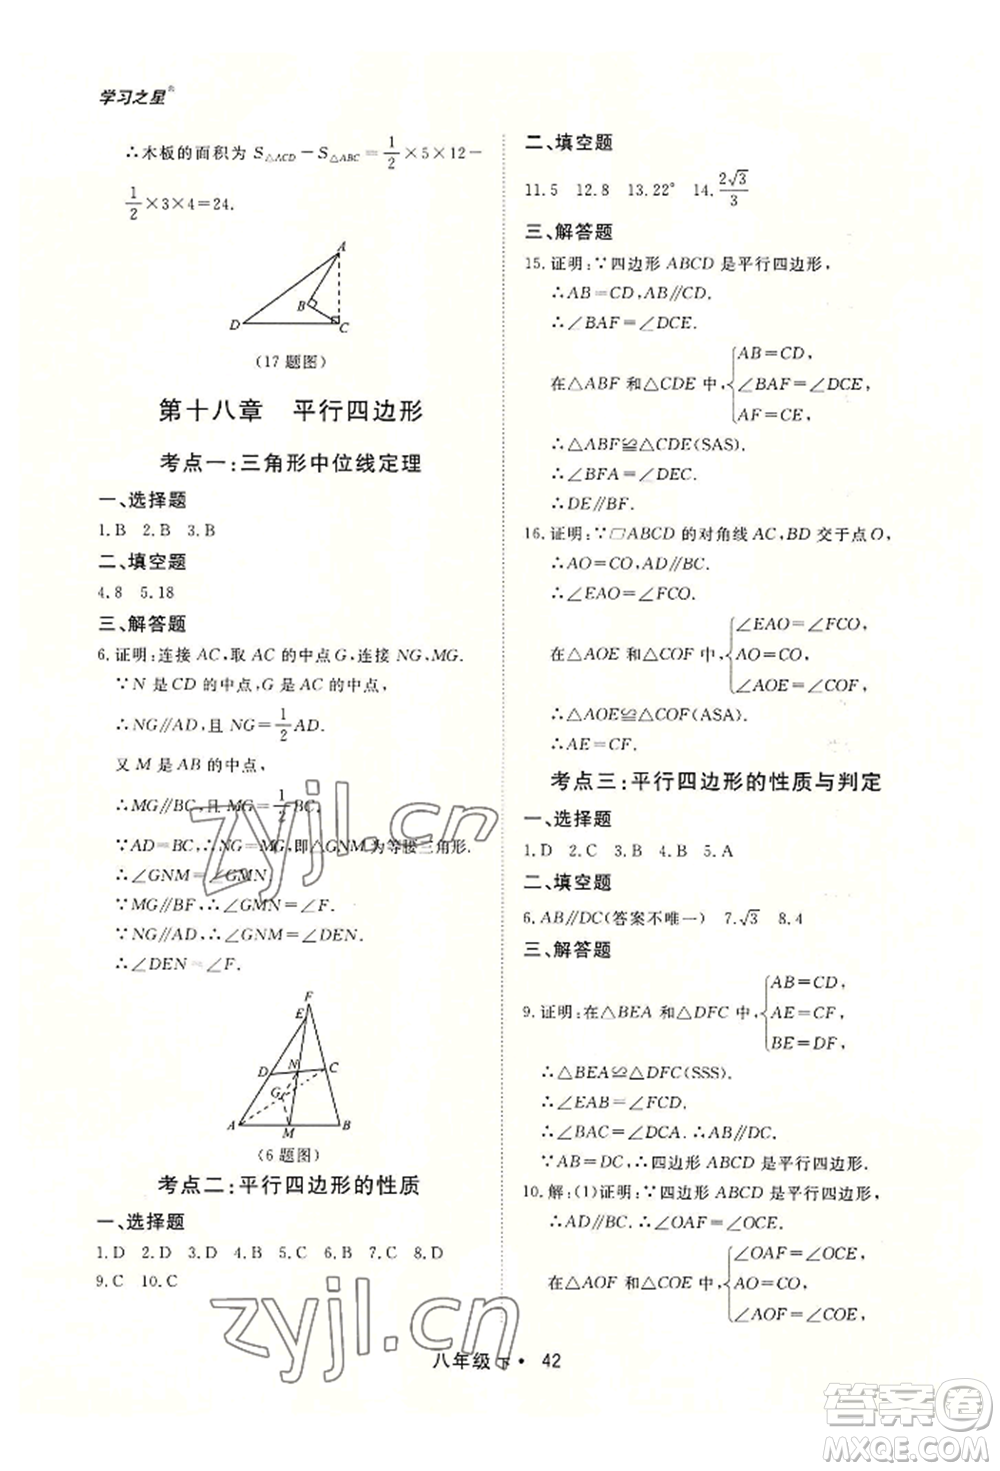 学习之星®
∴木板的面积为 S△ACD－S△ABC＝1/2×5×12－
1/2×3×4＝24.
A
B
D
C
(17 题图)
第十八章 平行四边形
考点一:三角形中位线定理
一、选择题
1.B 2.B 3.B
二、填空题
4.8 5.18
三、解答题
6.证明:连接 AC,取 AC 的中点 G,连接 NG,MG.
∵N 是 CD 的中点,G 是 AC 的中点,
∴NG∥AD,且 NG＝1/2AD.
又 M 是 AB 的中点,
∴MG∥BC,且 MG＝1/2BC.
∵AD＝BC,∴NG＝MG,即△GNM 为等腰三角形.
∴∠GNM＝∠GMN.
∵MG∥BF,∴∠GMN＝∠F.
∵NG∥AD,∴∠GNM＝∠DEN.
∴∠DEN＝∠F.
F
E
N
D
C
G
A
M
B
(6 题图)
考点二:平行四边形的性质
一、选择题
1.D 2.D 3.D 4.C 5.B 6.B 7.C 8.D
9.C 10.C
二、填空题
11.5 12.8 13.22° 14.2√3/3
三、解答题
15.证明:∵四边形 ABCD 是平行四边形,
∴AB＝CD,AB∥CD.
∴∠BAF＝∠DCE.
AB＝CD,
在△ABF 和△CDE 中,{∠BAF＝∠DCE,
AF＝CE.
∴△ABF≌△CDE(SAS).
∴∠BFA＝∠DEC.
∴DE∥BF.
16.证明:∵▱ABCD 的对角线 AC,BD 交于点 O,
∴AO＝CO,AD∥BC.
∴∠EAO＝∠FCO.
∠EAO＝∠FCO,
在△AOE 和△COF 中,{AO＝CO,
∠AOE＝∠COF,
∴△AOE≌△COF(ASA).
∴AE＝CF.
考点三:平行四边形的性质与判定
一、选择题
1.D 2.C 3.B 4.B 5.A
二、填空题
6.AB∥DC(答案不唯一) 7.√3 8.4
三、解答题
AB＝CD,
9.证明:在△BEA 和△DFC 中,{AE＝CF,
BE＝DF,
∴△BEA≌△DFC(SSS).
∴∠EAB＝∠FCD.
∴∠BAC＝∠DCA.∴AB∥DC.
∵AB＝DC,∴四边形 ABCD 是平行四边形.
10.解:(1)证明:∵四边形 ABCD 是平行四边形,
∴AD∥BC.∴∠OAF＝∠OCE.
∠OAF＝∠OCE,
在△AOF 和△COE 中,{AO＝CO,
∠AOF＝∠COE,
八年级 下 · 42
zyjl.cn
zyjl.cn
答案圈
MXQE.COM